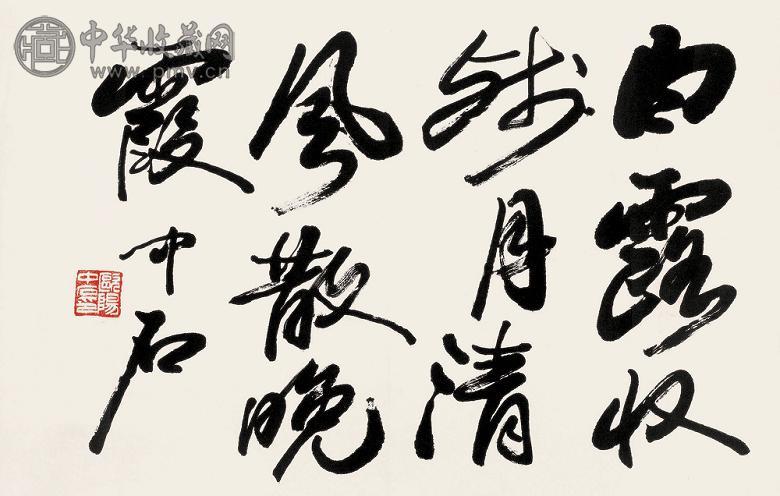 白露收
残月清
风散晚
霞 中石
欧阳中石
中华收藏网
www.pmv.cn